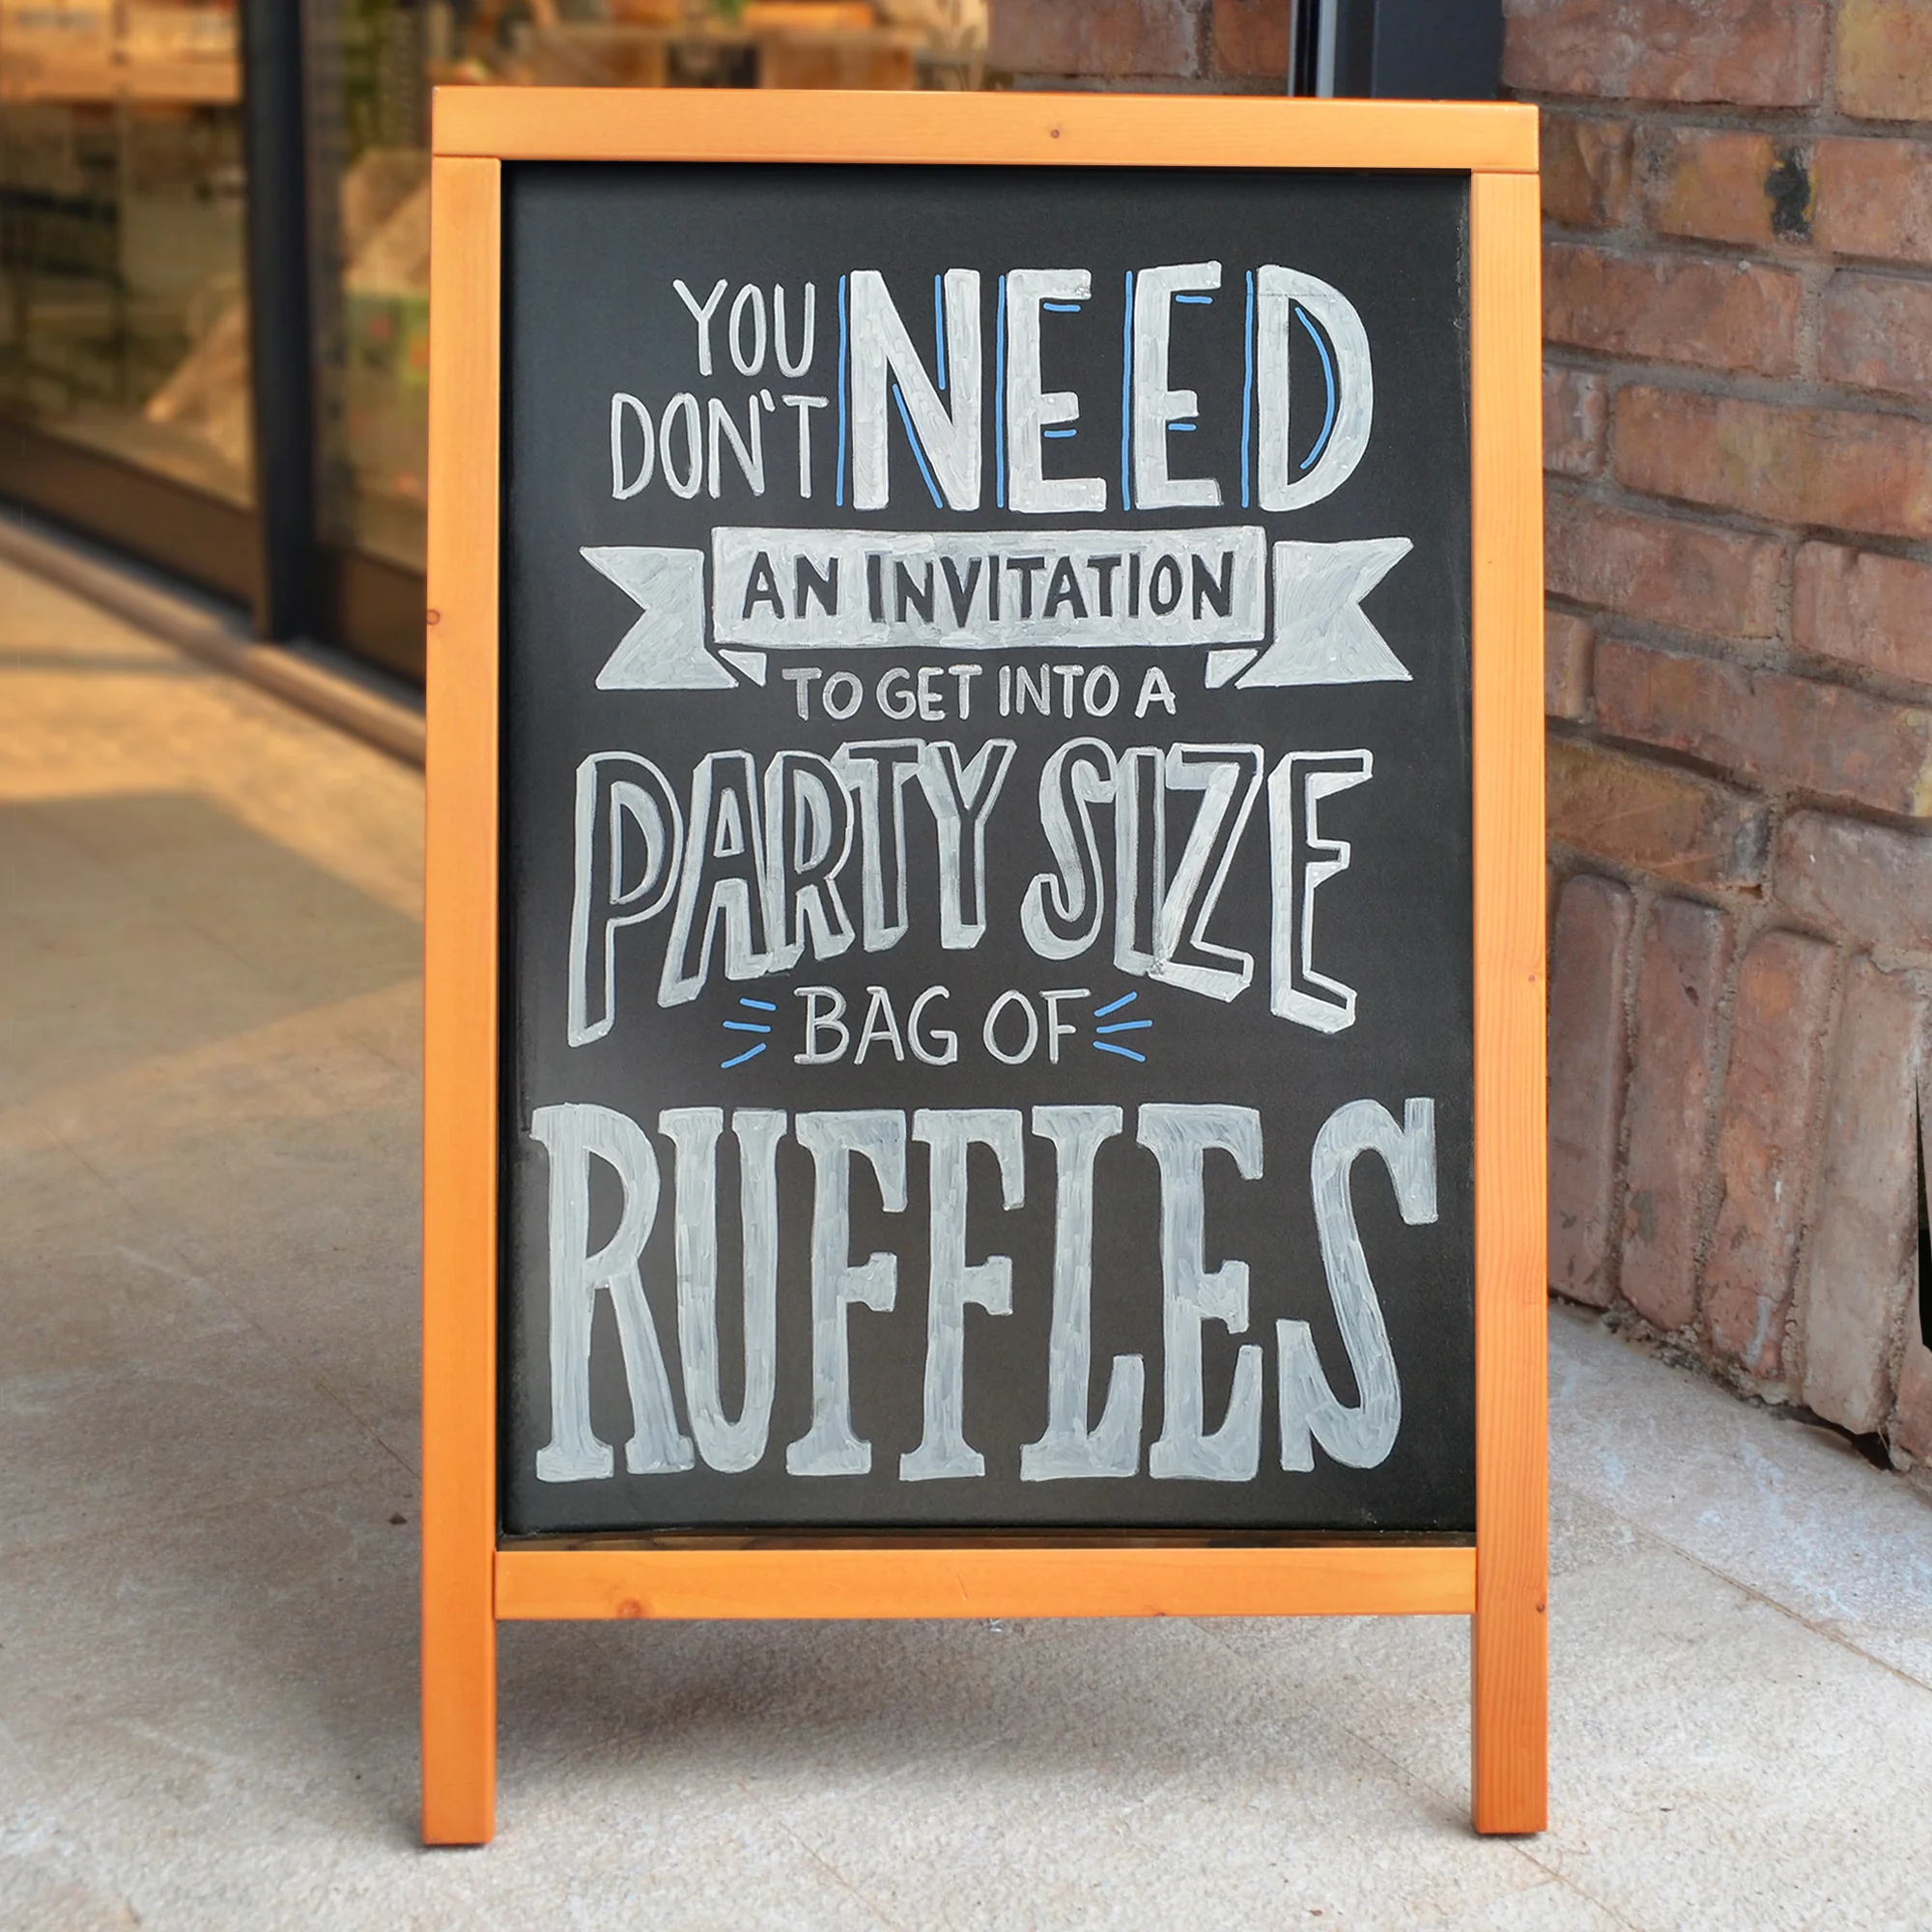 YOU
DON'T NEED
AN INVITATION
TO GET INTO A
PARTY SIZE
BAG OF
RUFFLES